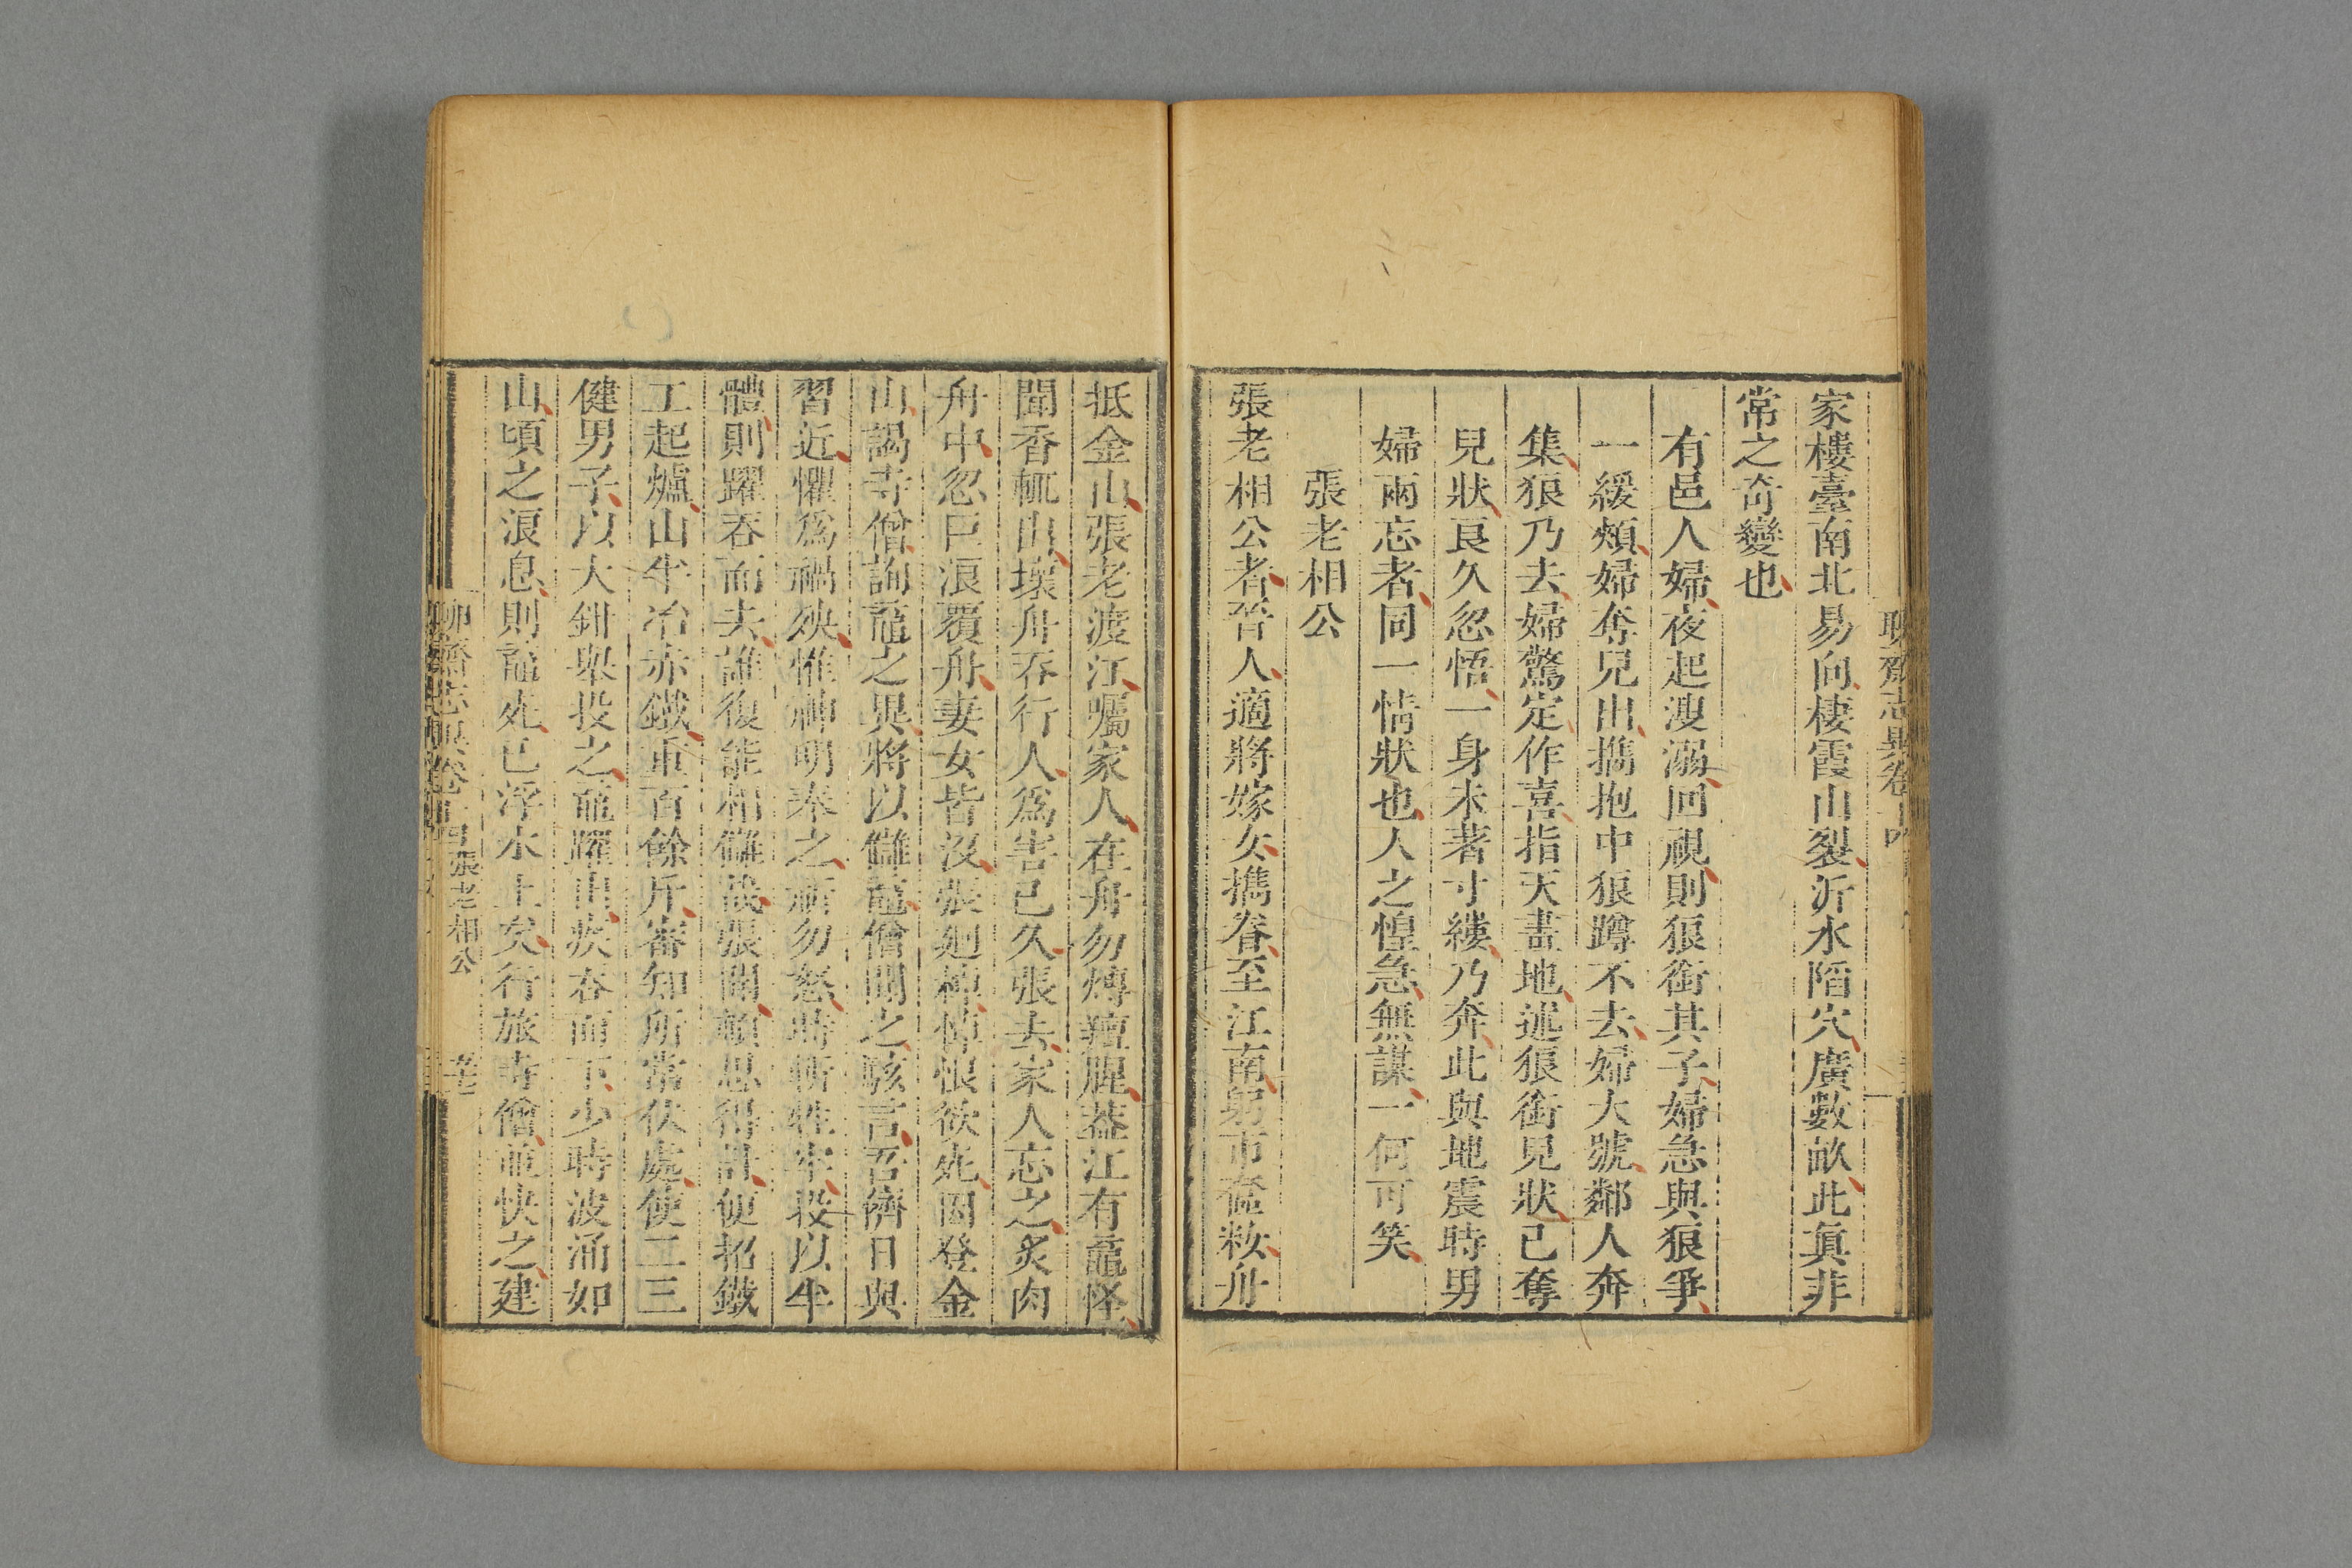 家樓臺南北易向棲霞山裂沂水陷穴廣數畝此眞非
常之奇變也
有邑人婦夜起溲溺回視則狼銜其子婦急與狼爭
一緩頰婦奪兒出擕抱中狼蹲不去婦大號鄰人奔
集狼乃去婦驚定作喜指天畫地述狼銜兒狀己奪
兒狀良久忽悟一身未著寸縷乃奔此與地震時男
婦兩忘者同一情狀也人之惶急無謀一何可笑
張老相公
張老相公者晉人適將嫁女擕眷至江南躬市奩粧舟
抵金山張老渡江囑家人在舟勿煿羶腥葢江有黿怪
聞香輒出壞舟吞行人爲害已久張去家人忘之炙肉
舟中忽巨浪覆舟妻女皆沒張廻棹悼恨欲死因登金
山謁寺僧詢黿之異將以讎黿僧聞之駭言吾儕日與
習近懼爲禍殃惟神明奉之祈勿怒時斬牲牢投以半
體則躍吞而去誰復能相讎哉張聞頓思得計便招鐵
工起爐山半冶赤鐵重百餘斤審知所常伏處使二三
健男子以大鉗舉投之黿躍出疾吞而下少時波涌如
山頃之浪息則黿死已浮水上矣行旅寺僧並快之建
張老相公